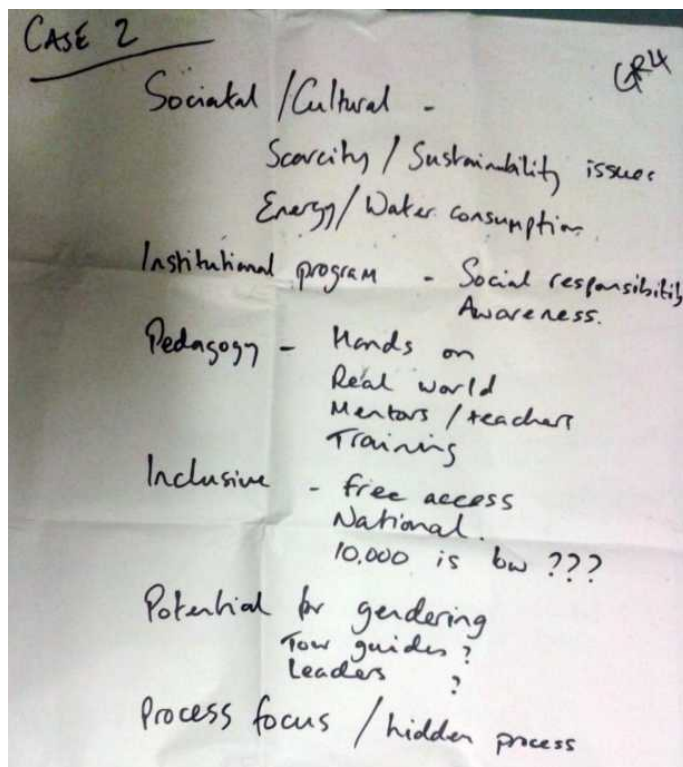 CASE 2
GR4
Sociatal / Cultural -
Scarcity / Sustainability issues
Energy / Water consumption.
Institutional program - Social responsibility
Awareness.
Pedagogy - Hands on
Real world
Mentors / teachers
Training
Inclusive - free access
National.
10.000 is low ???
Potential for gendering
Tour guides ?
Leaders ?
Process focus / hidden process